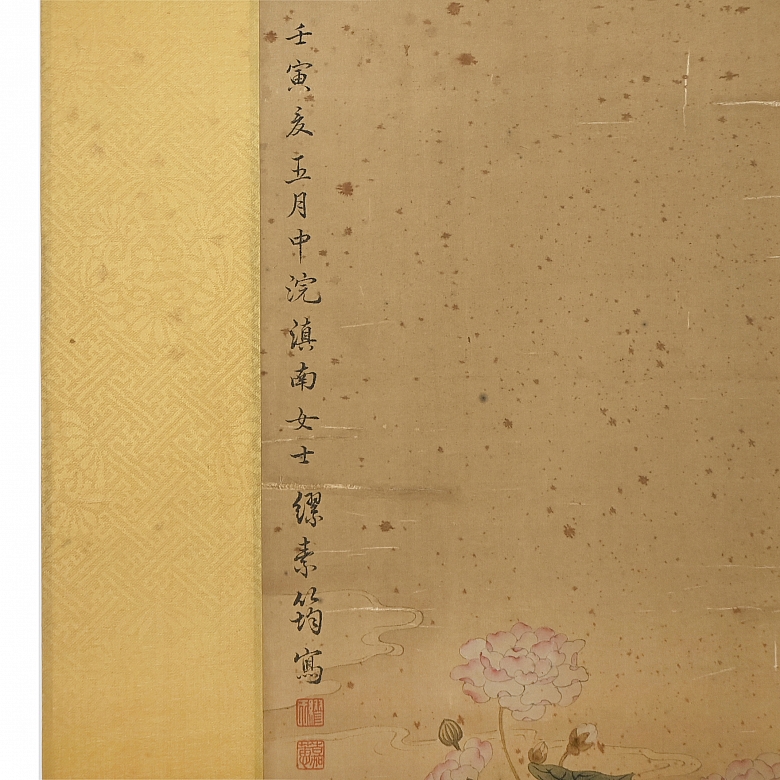 壬寅夏五月中浣滇南女士繆素筠寫